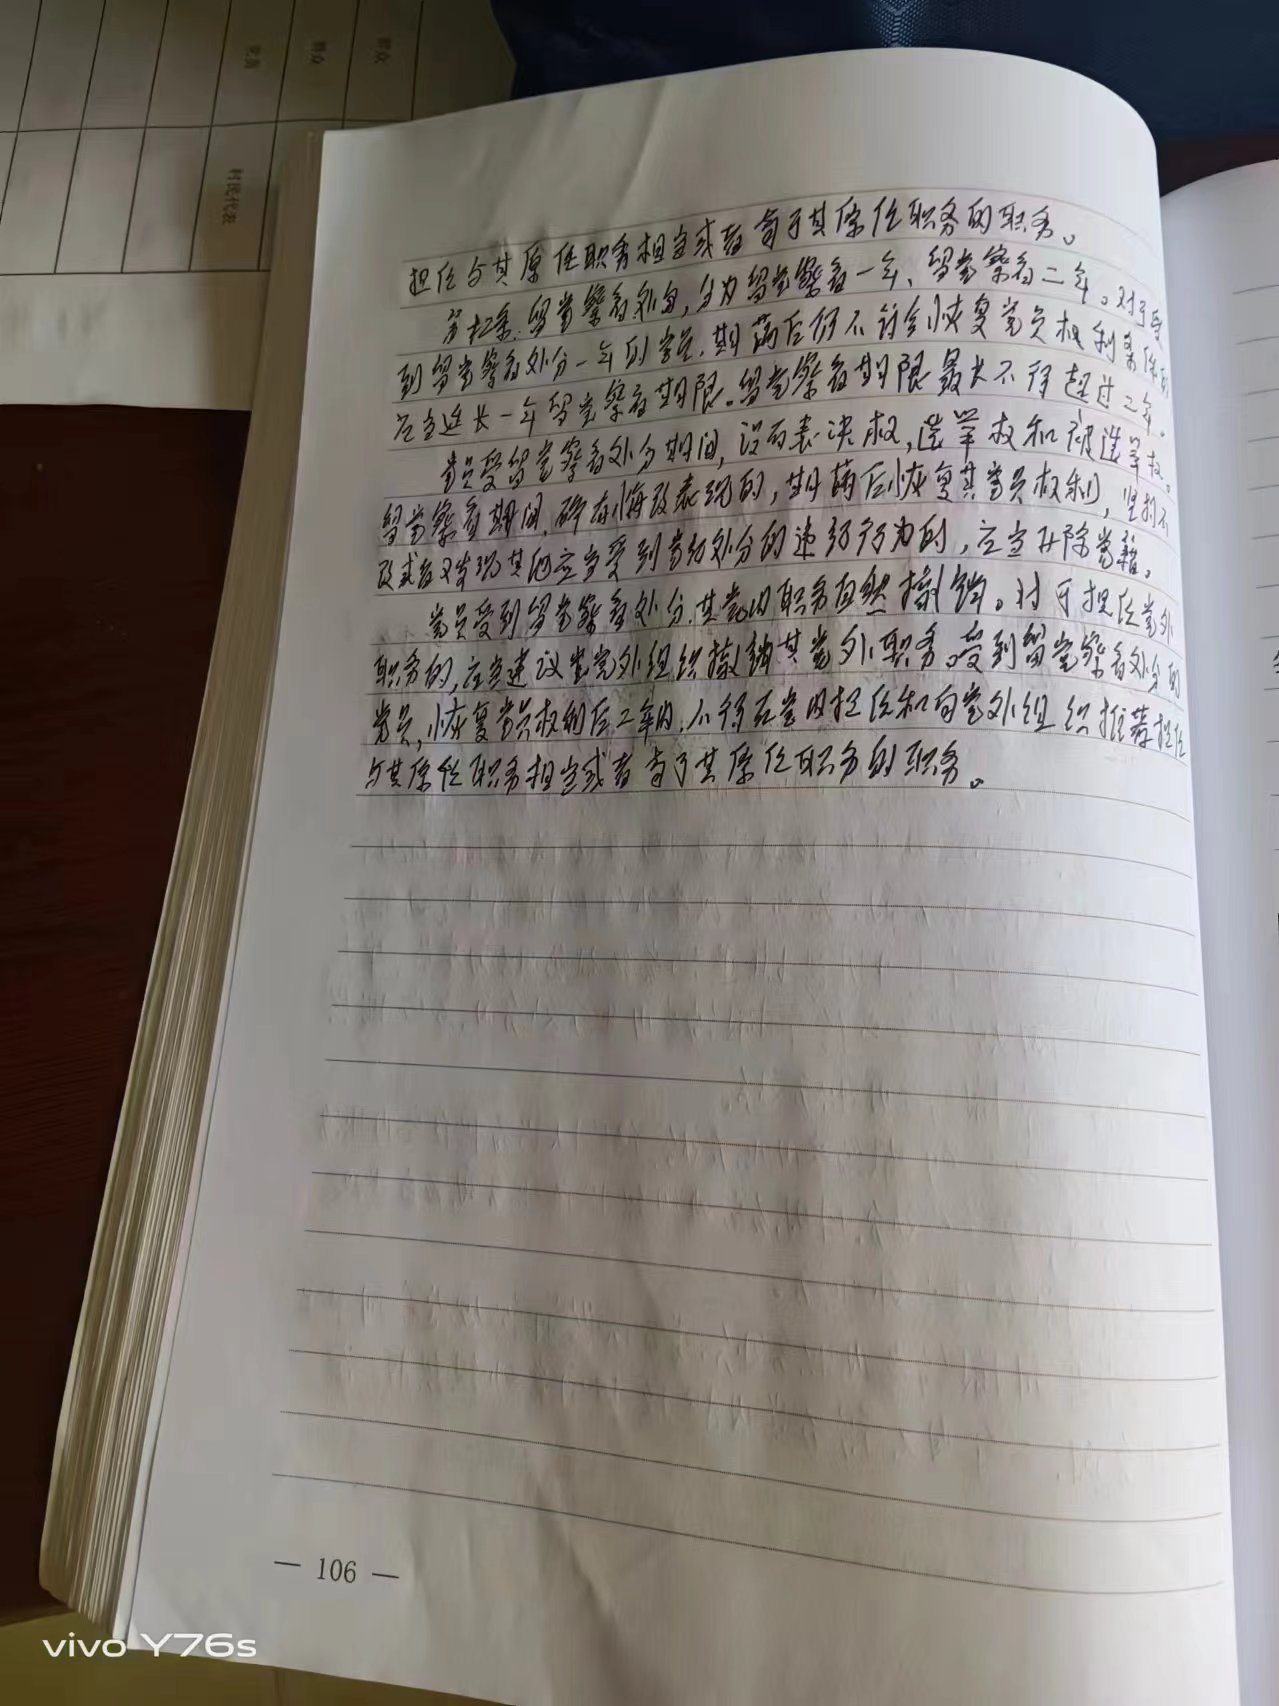 党员
群众
群众
村民代表
担任与其原任职务相当或者高于其原任职务的职务。
第十二条 留党察看处分,分为留党察看一年、留党察看二年。对于受
到留党察看处分一年的党员,期满后仍不符合恢复党员权利条件的
应当延长一年留党察看期限。留党察看期限最长不得超过二年。
党员受留党察看处分期间,没有表决权,选举权和被选举权。
留党察看期间,确有悔改表现的,期满后恢复其党员权利,坚持不
改或者又发现其他应当受到党纪处分的违纪行为的,应当开除党籍。
党员受到留党察看处分,其党内职务自然撤销。对于担任党外
职务的,应当建议党外组织撤销其党外职务。受到留党察看处分的
党员,恢复党员权利后二年内,不得在党内担任和向党外组织推荐担任
与其原任职务相当或者高于其原任职务的职务。
— 106 —
vivo Y76s